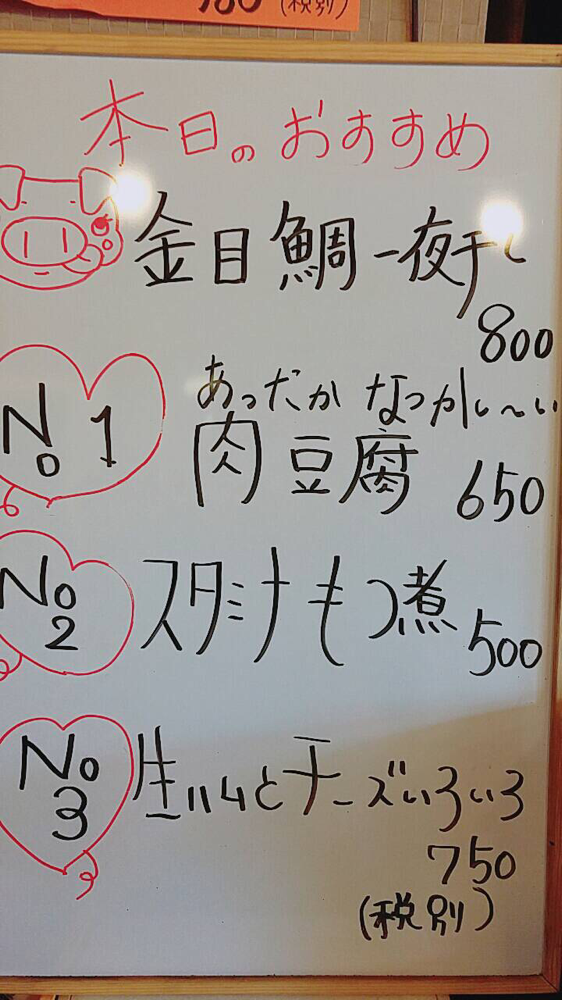 (税別)
本日のおすすめ
金目鯛一夜干し
800
No 1
あったか なつかし〜い
肉豆腐 650
No 2
スタミナもつ煮 500
No 3
生ハムとチーズいろいろ
750
(税別)